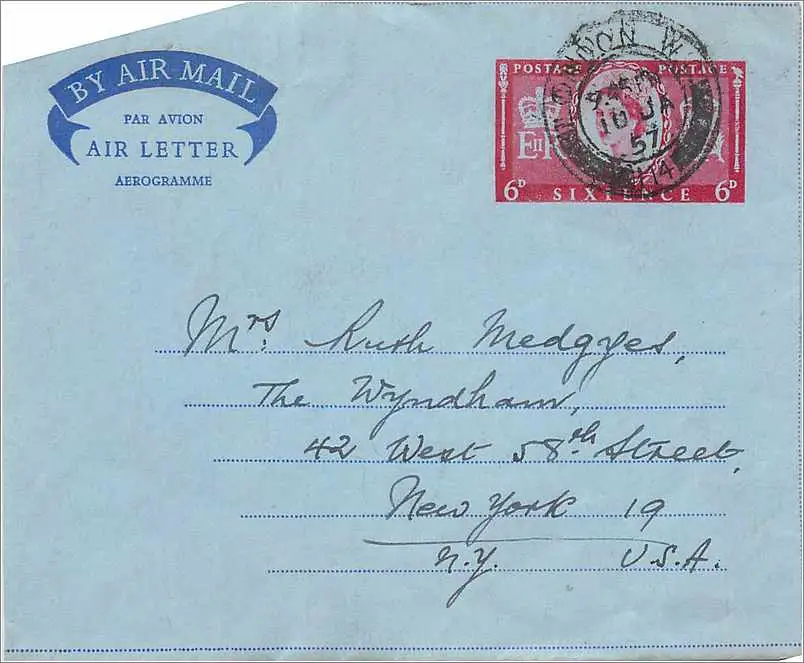 BY AIR MAIL
PAR AVION
AIR LETTER
AEROGRAMME
POSTAGE POSTAGE
E II R
6D SIXPENCE 6D
LONDON W.
10 JA
57
Mrs. Ruth Medgyes,
The Wyndham,
42 West 58th Street,
New York 19
N.Y. U.S.A.